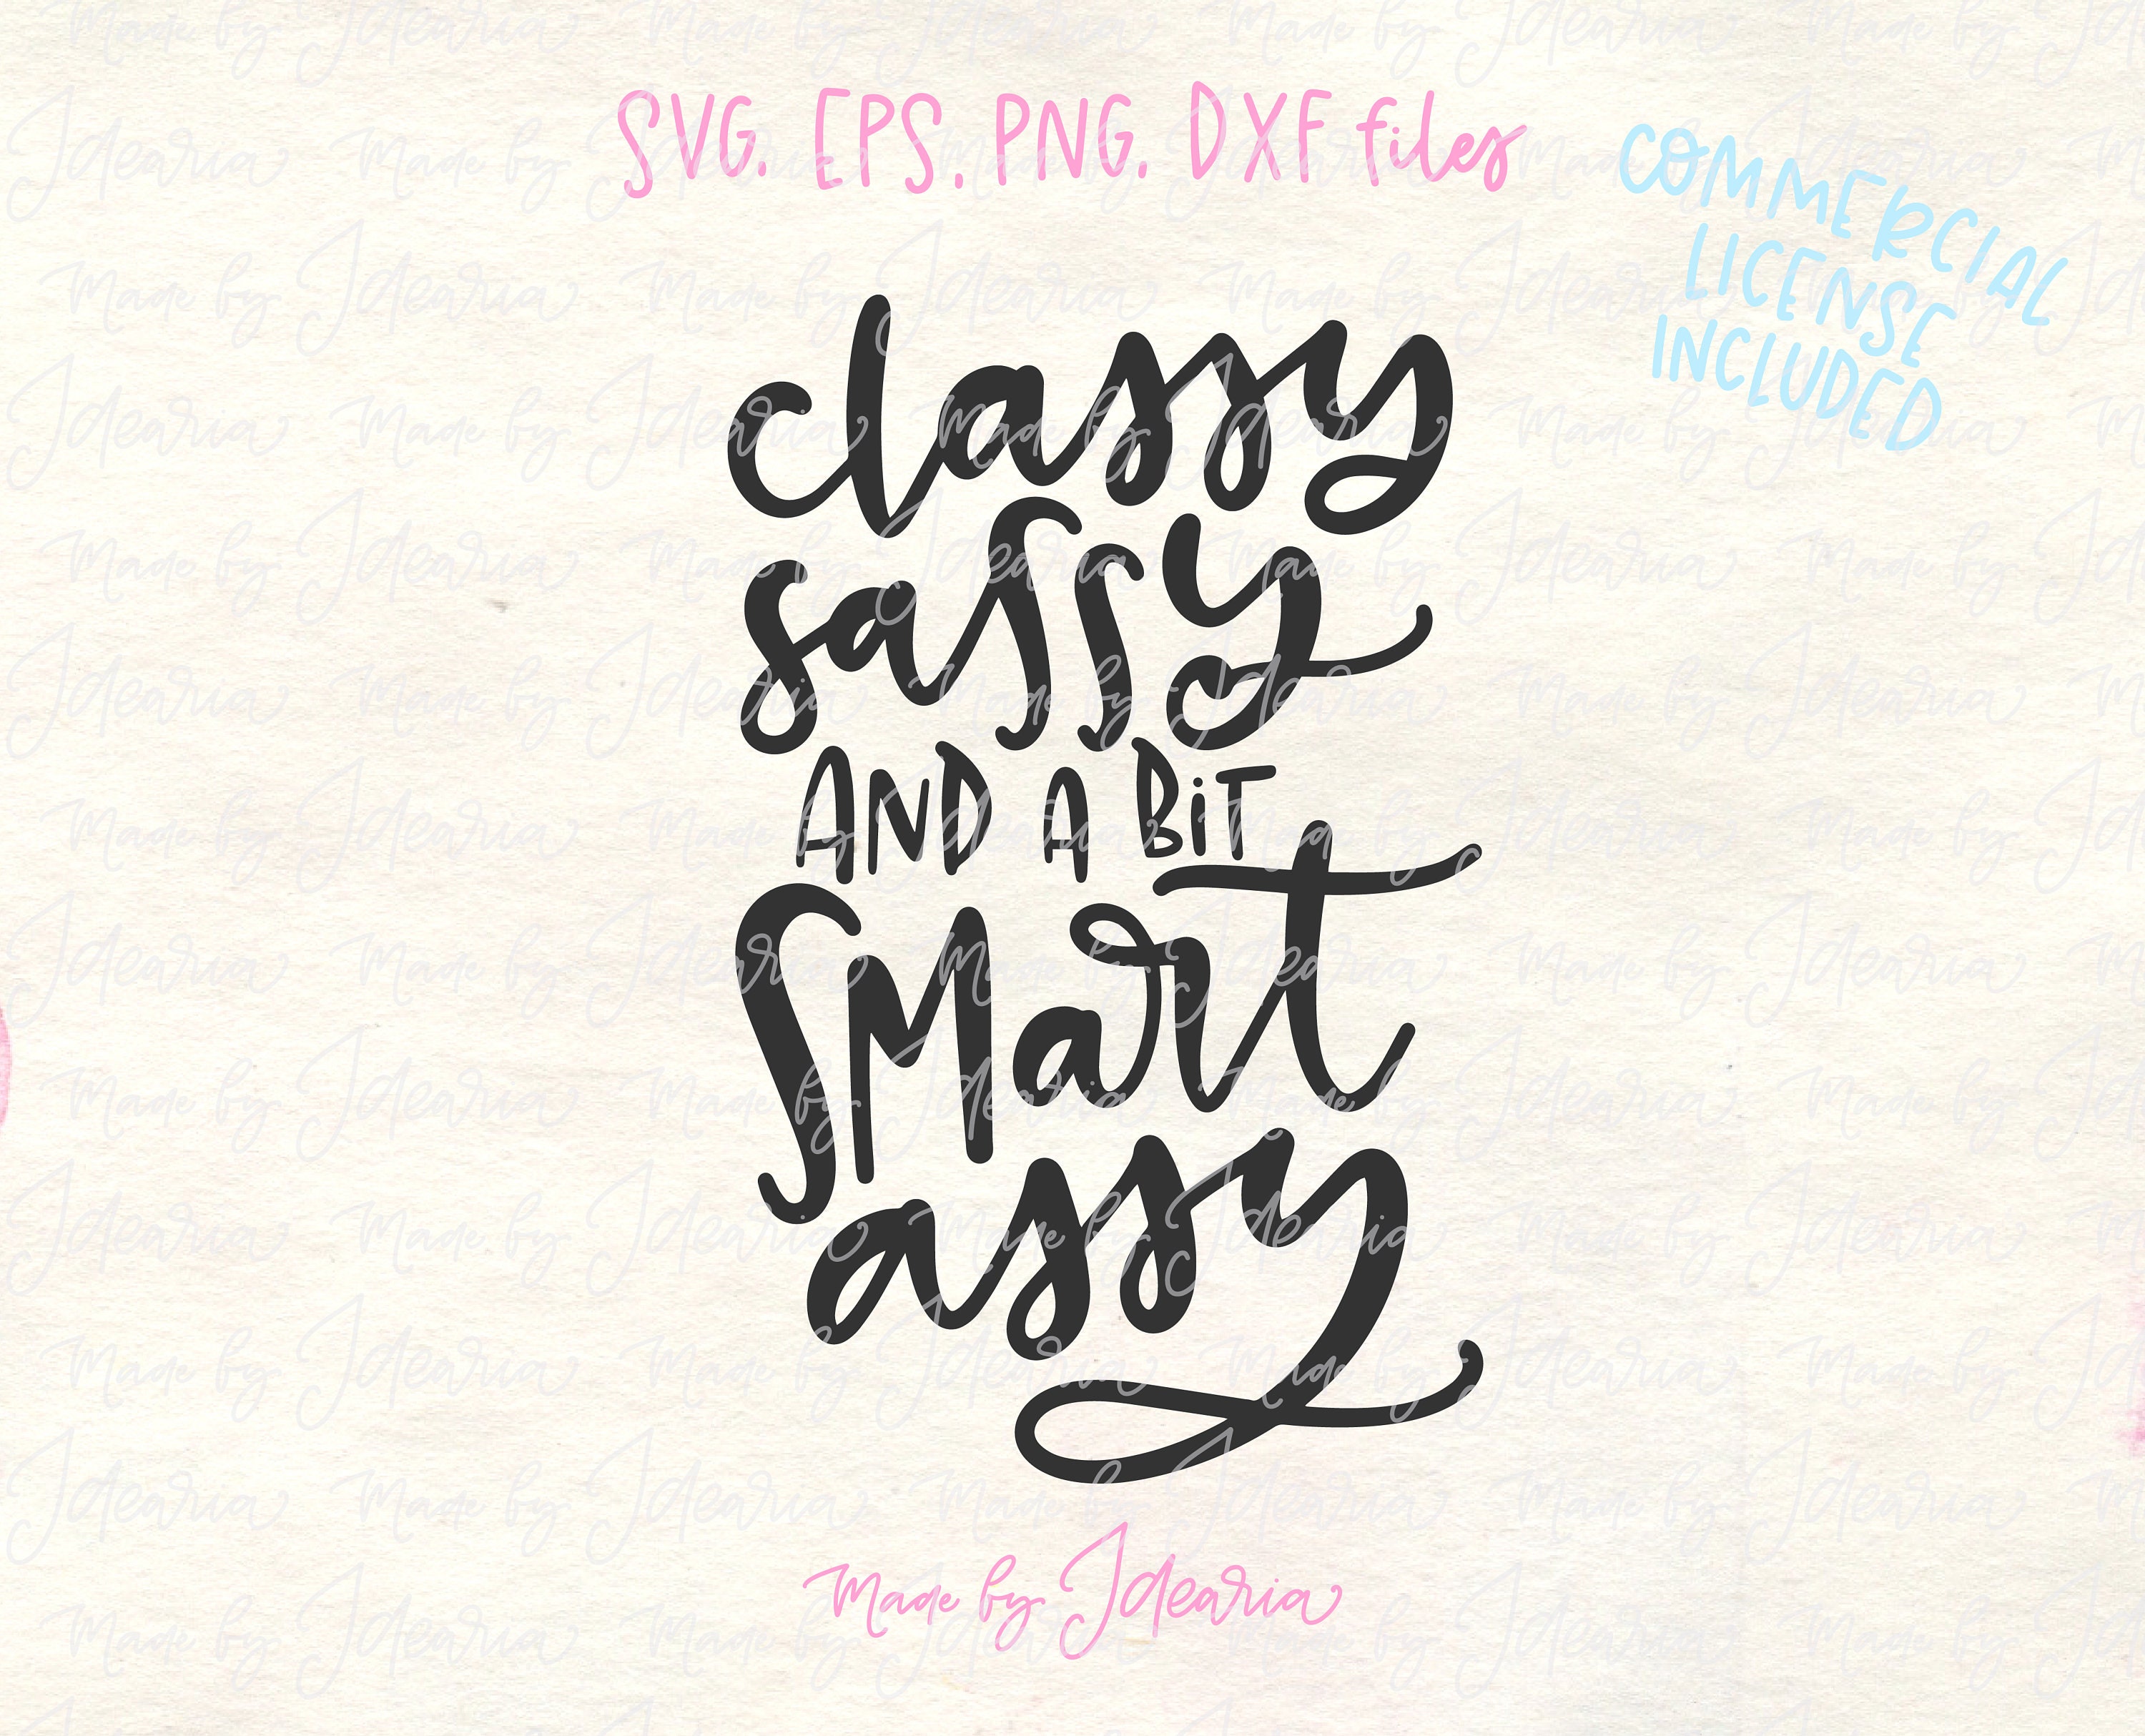 SVG. EPS. PNG. DXF files
COMMERCIAL
LICENSE
INCLUDED
classy
sassy
AND A BiT
SMart
assy
Made by Idearia